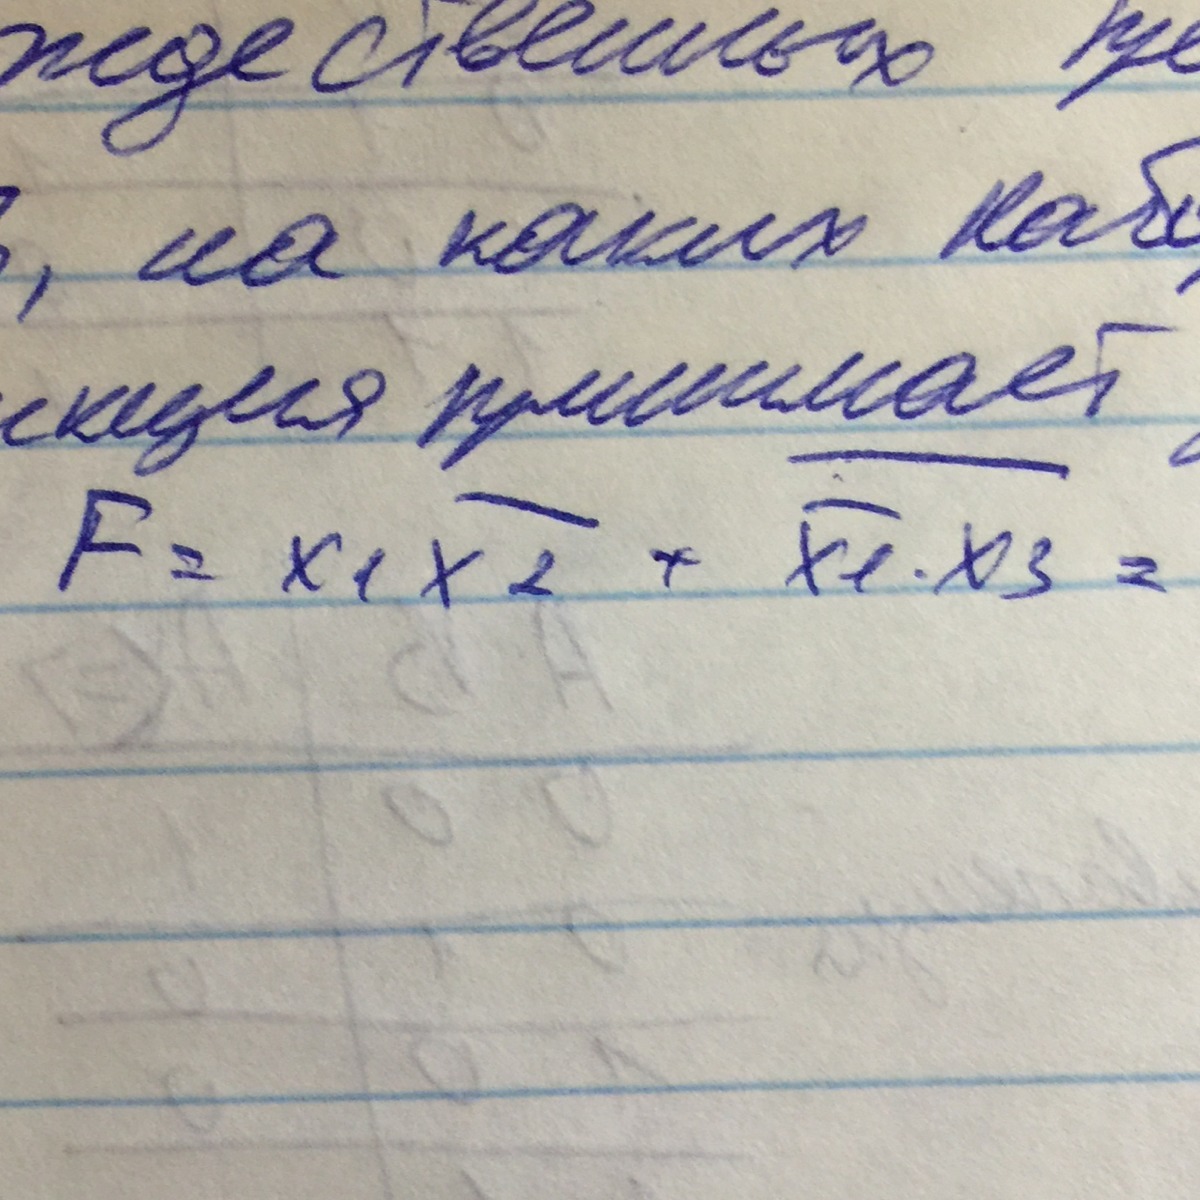 ждественных пре
, на каких набу
нкция принимает
F = x1 x̅2̅ + \overline{\overline{x1} · x3} =